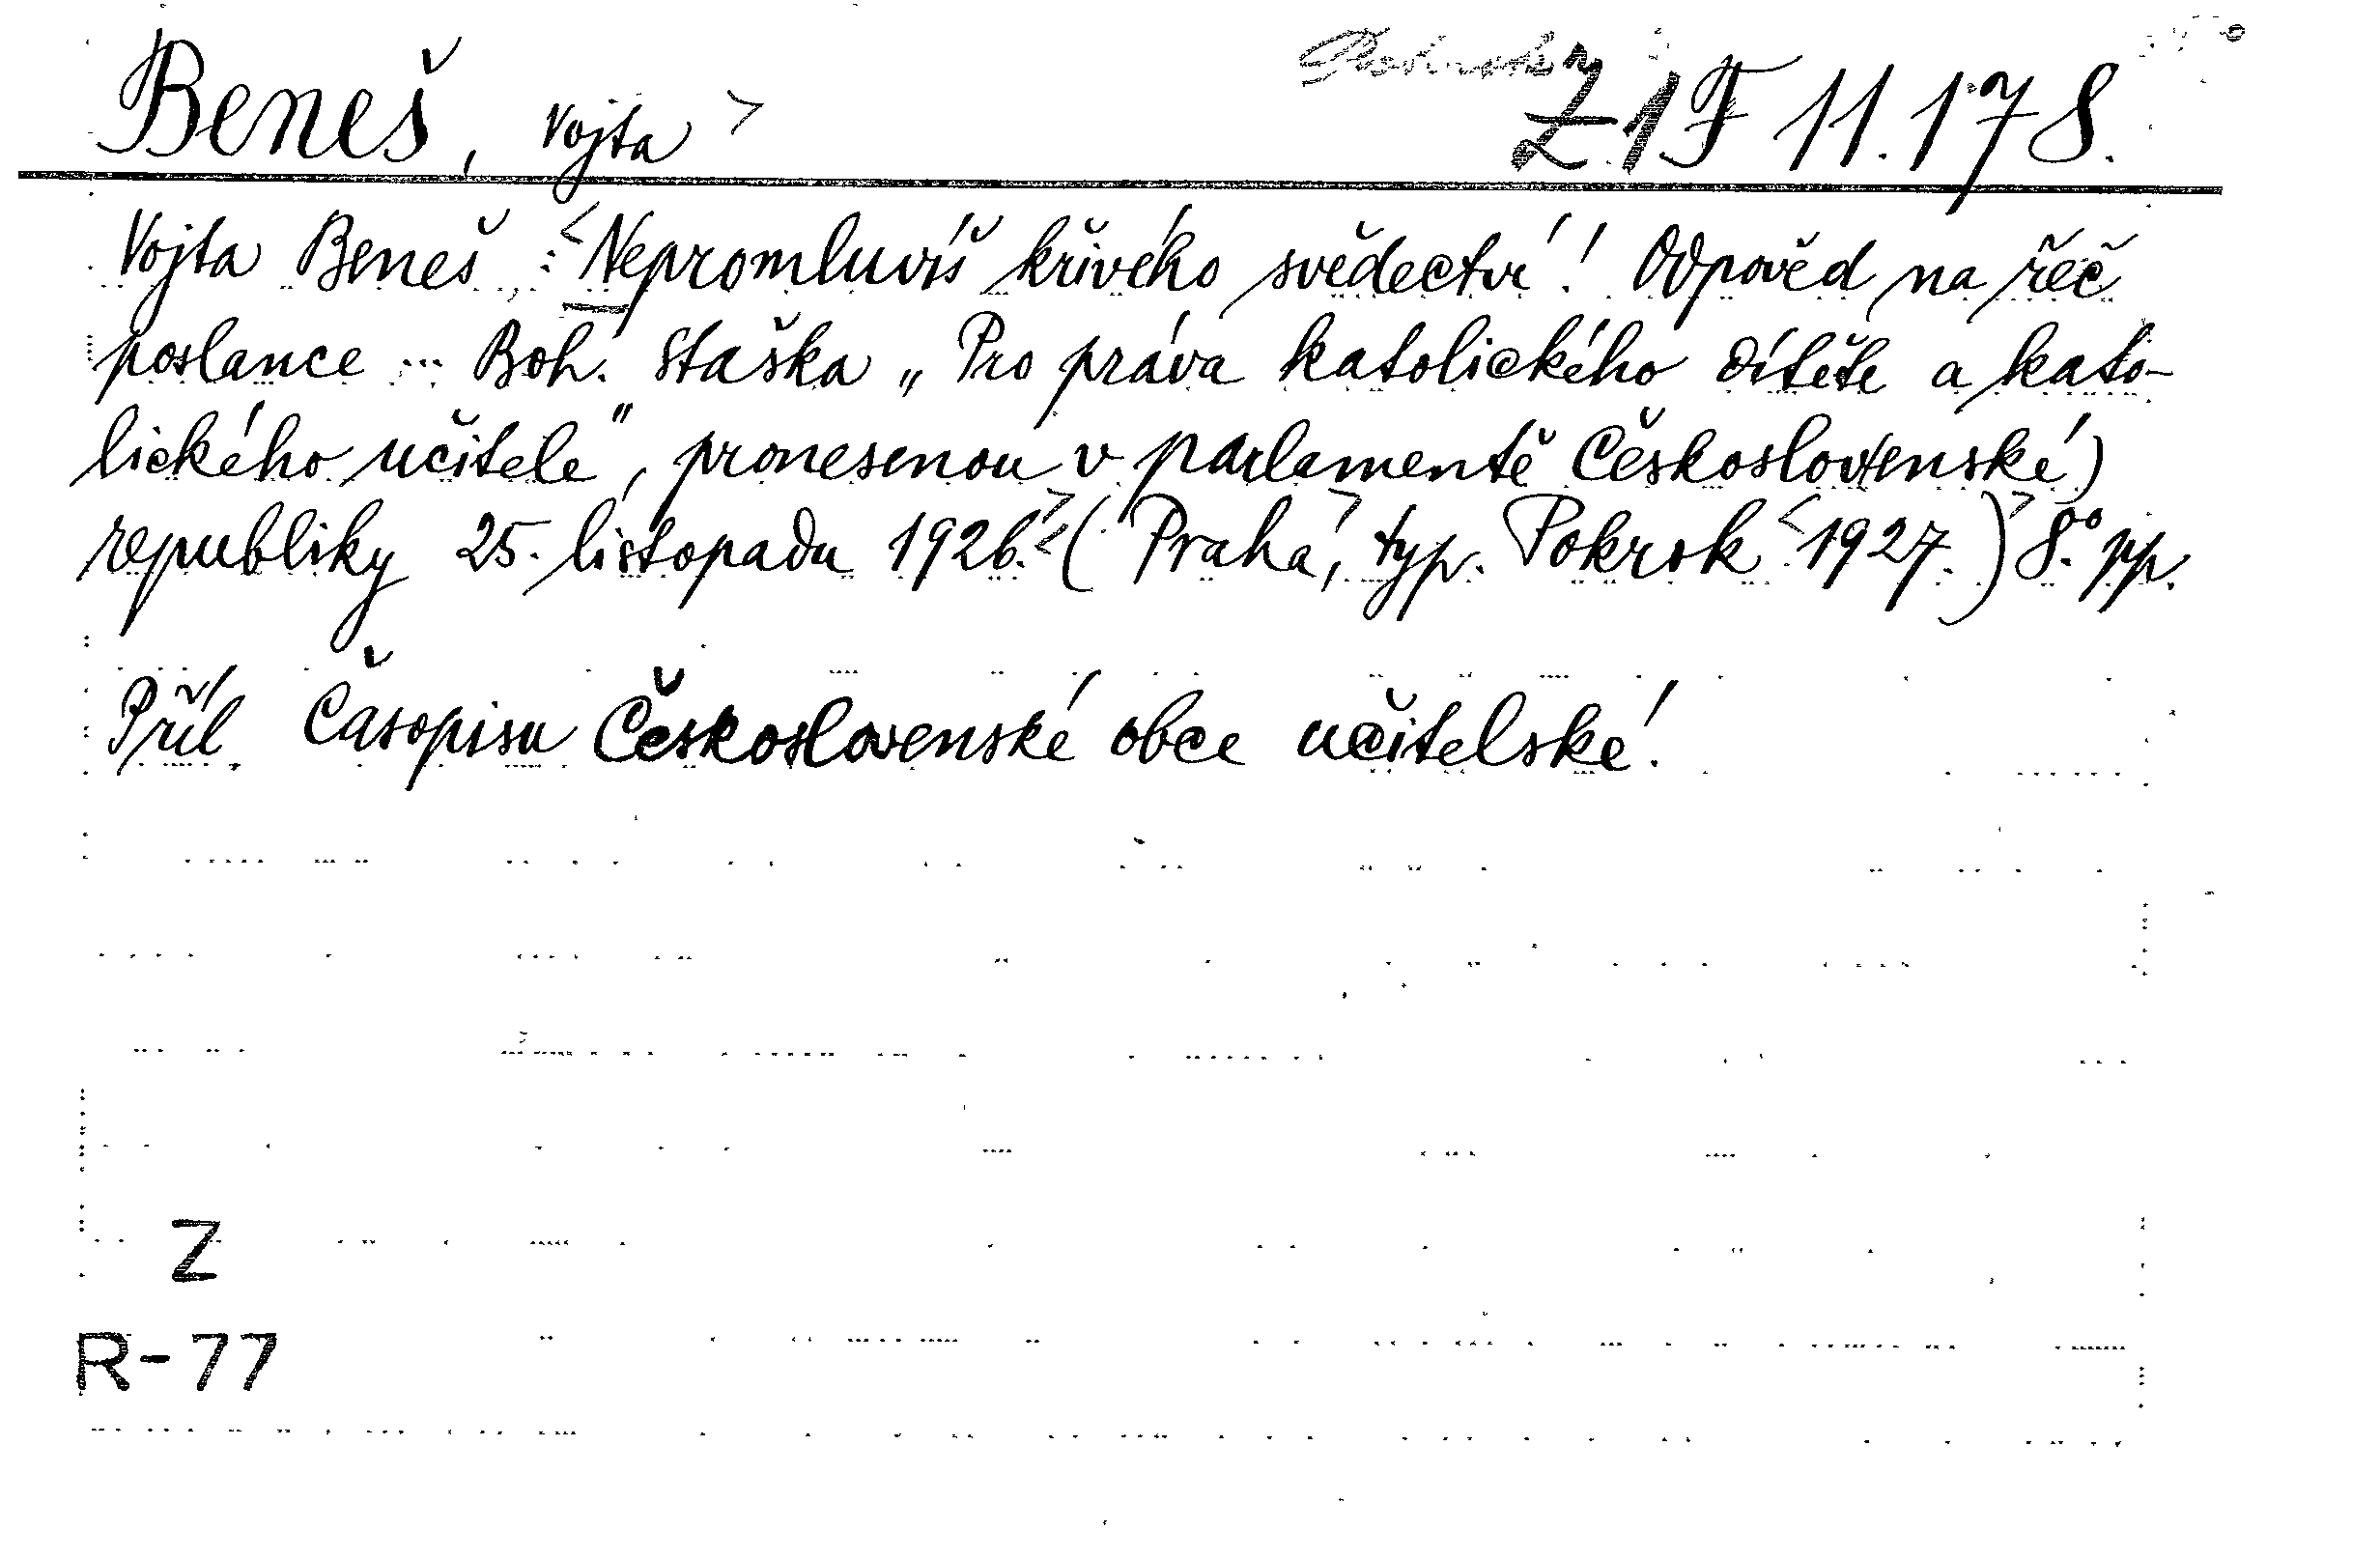 Beneš, Vojta > Ž1F 11.178.
Vojta Beneš : <Nepromluvíš křivého svědectví! Odpověd na řěč
poslance ... Boh. Staška „Pro práva katolického dítěte a kato-
lického učitele", pronesenou v parlamentě Československé)
republiky 25. listopadu 1926.> <(Praha>, typ. Pokrok <1927.)> 8.° pp.
Příl. Časopisu Československé obce učitelské.
Z
R-77